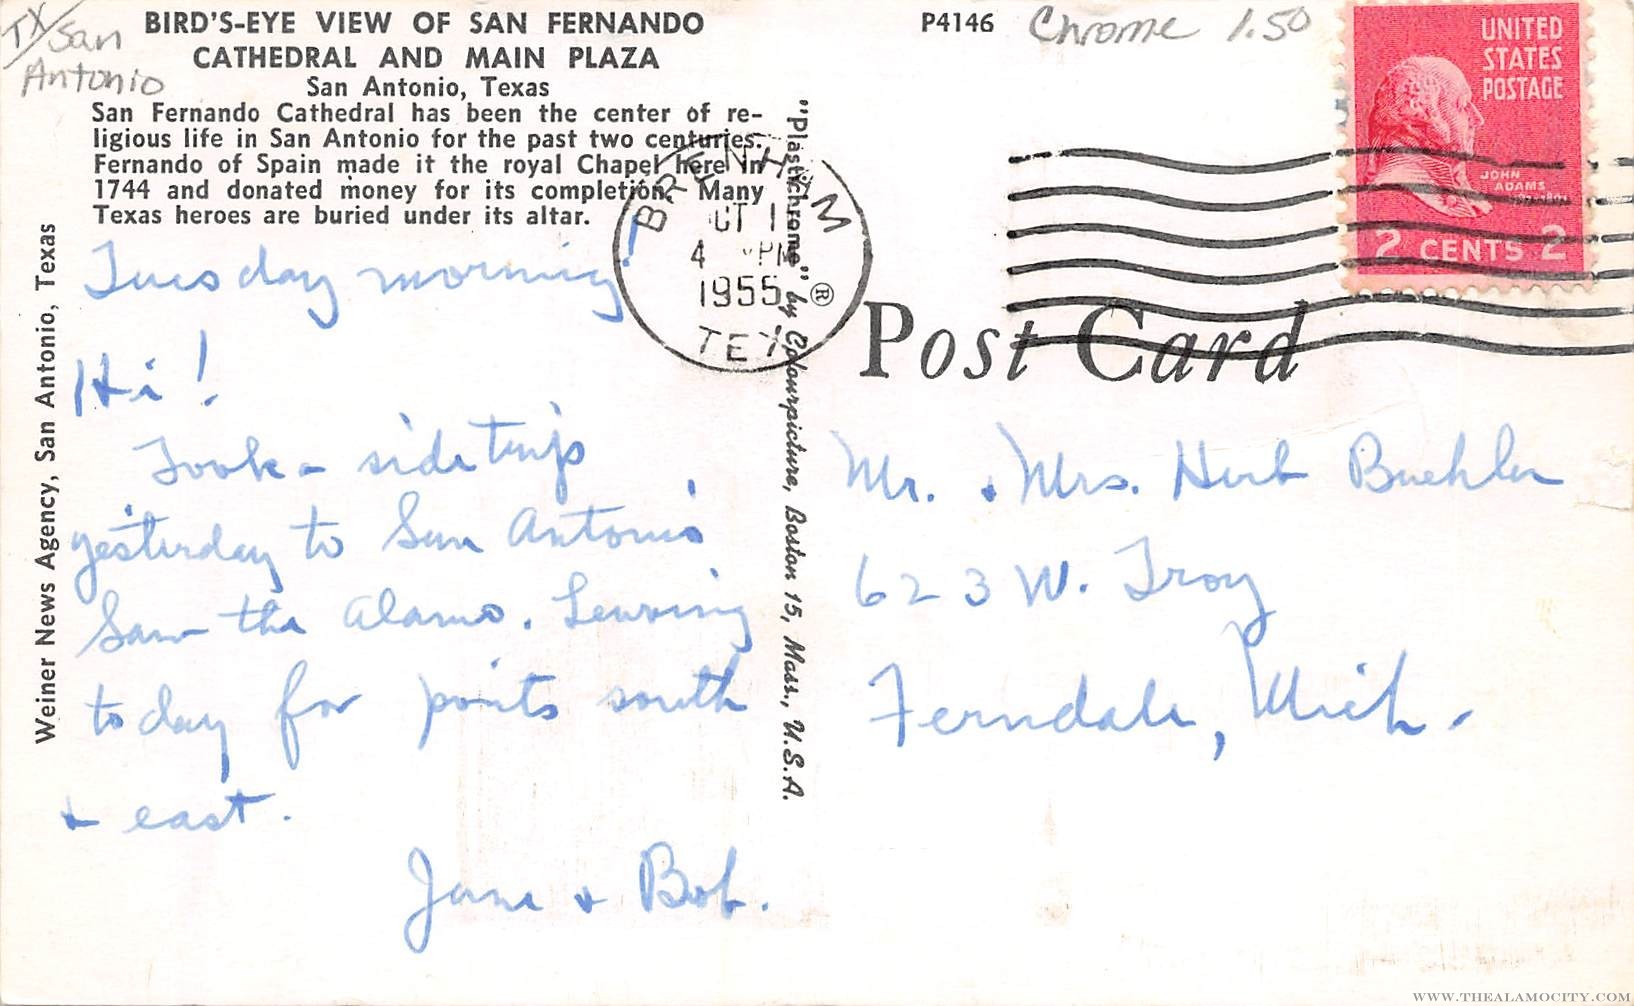 TX/San
Antonio
BIRD'S-EYE VIEW OF SAN FERNANDO
CATHEDRAL AND MAIN PLAZA
San Antonio, Texas
San Fernando Cathedral has been the center of re-
ligious life in San Antonio for the past two centuries.
Fernando of Spain made it the royal Chapel here in
1744 and donated money for its completion. Many
Texas heroes are buried under its altar.
Weiner News Agency, San Antonio, Texas
Tuesday morning
Hi!
Took a side trip
yesterday to San Antonio
Saw the Alamo. Leaving
today for points south
+ east.
Jane + Bob.
"Plastichrome" ® by Colourpicture, Boston 15, Mass., U.S.A.
P4146
Chrome 1.50
BRENHAM
OCT 1
4 PM
1955
TEX
UNITED
STATES
POSTAGE
JOHN
ADAMS
2 CENTS 2
Post Card
Mr. + Mrs. Herb Buehler
623 W. Troy
Ferndale, Mich.
WWW.THEALAMOCITY.COM